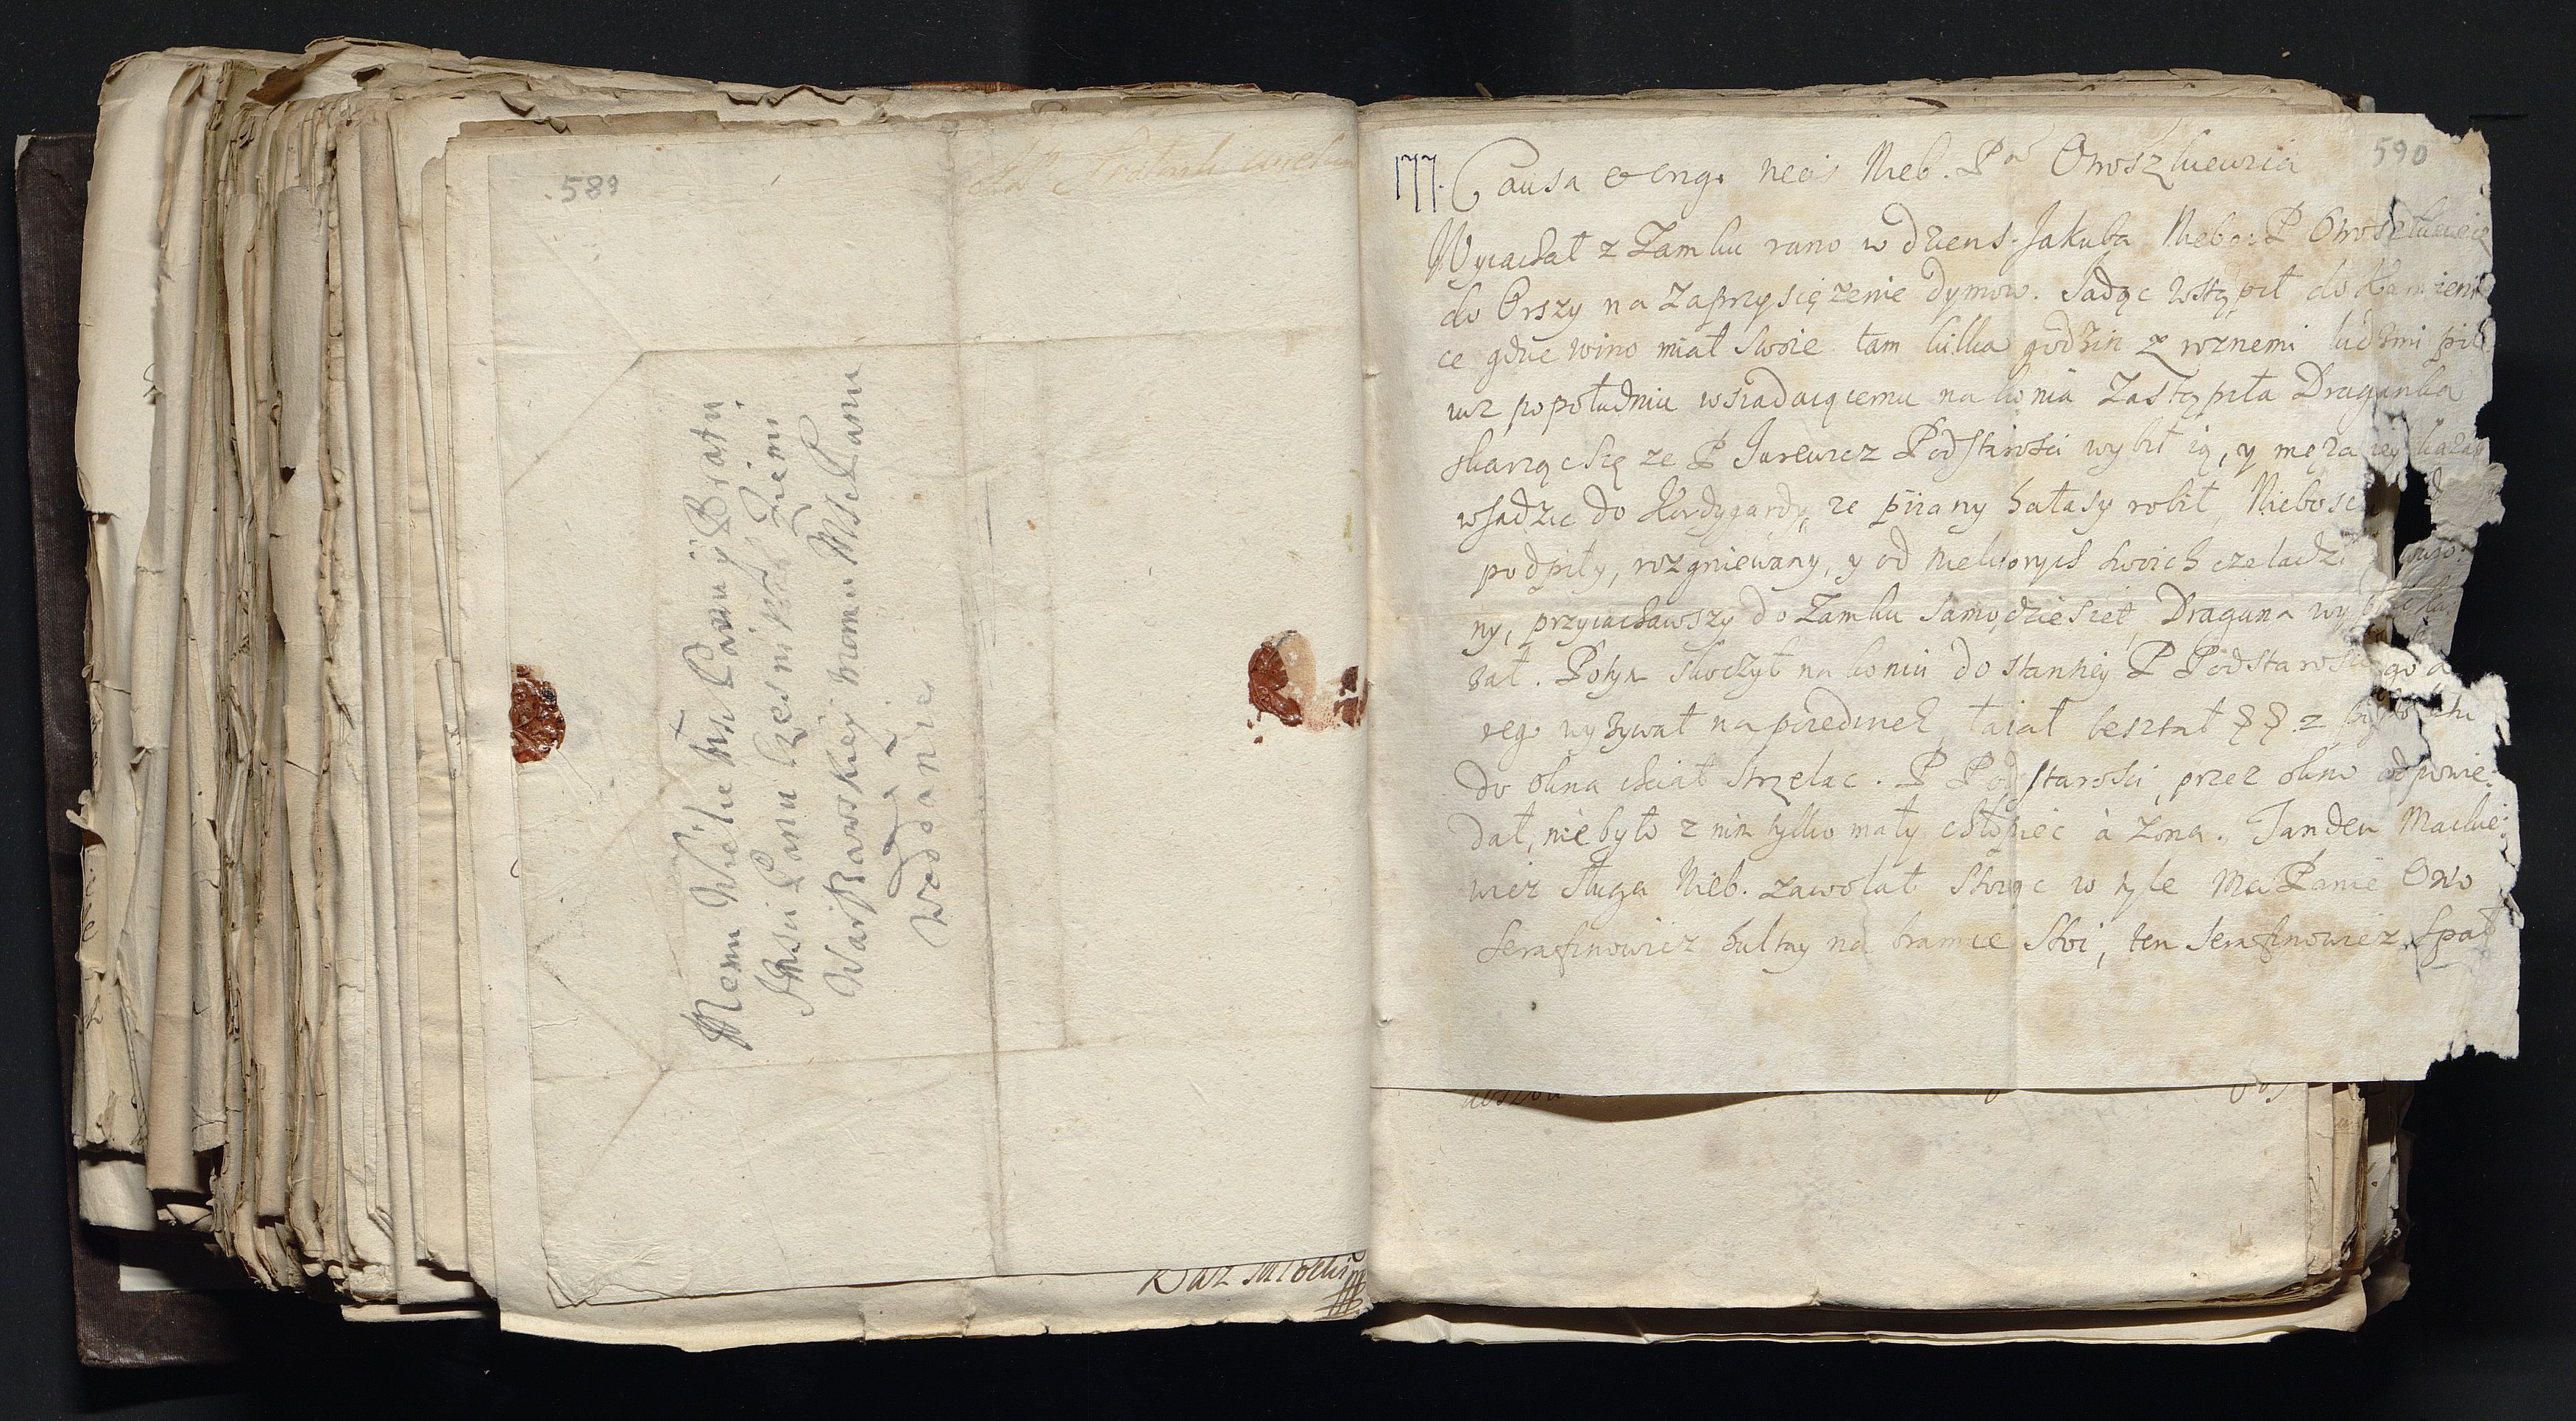 589
Memu Wielce Mśc Panu y Bratu
Jmsci Panu Czesnikowi Ziemi
WarszRawskiey memu MśćPanu
Wedoanie
590
177. Causa et eng. necis Nieb. Pa Oroszkiewicza
Wyiachał z Zamku rano w dzien S. Jakuba Niebo: P Oroszkiewicz
do Orszy na Zaprzysięzenie dymow. Jadąc wstąpił do Kamieni
ce gdzie wino miał swoie tam kilka godzin z roznemi ludzmi pił
iuz popołudniu wsiadaiącemu na konia Zastąpiła Draganka
skarząc się ze P Jurewicz Podstarosci wybił ią, y męza iey kazał
wsadzic do Kordygardy, ze piiany hałasy robił, Nieboscz
podpiły, rozgniewany, y od niektorych swoich czeladzi
ny, przyiachawszy do Zamku samodziesiet, Dragana wybic ka
zał. Potym skoczył na koniu do stancyey P Podstarosciego
rego wyzywał na poiedinek, łaiał beształ &&. z
do okna chciał strzelac. P Podstarosci, przez okno odpowie:
dał, nie było z nim tylko mały chłopiec à zona. Tandem Mackie:
wicz sługa Nieb. zawołał stoiąc w tyle MaPanie Owo
Serafinowicz hultay na bramce stoi, ten Serafinowicz spał